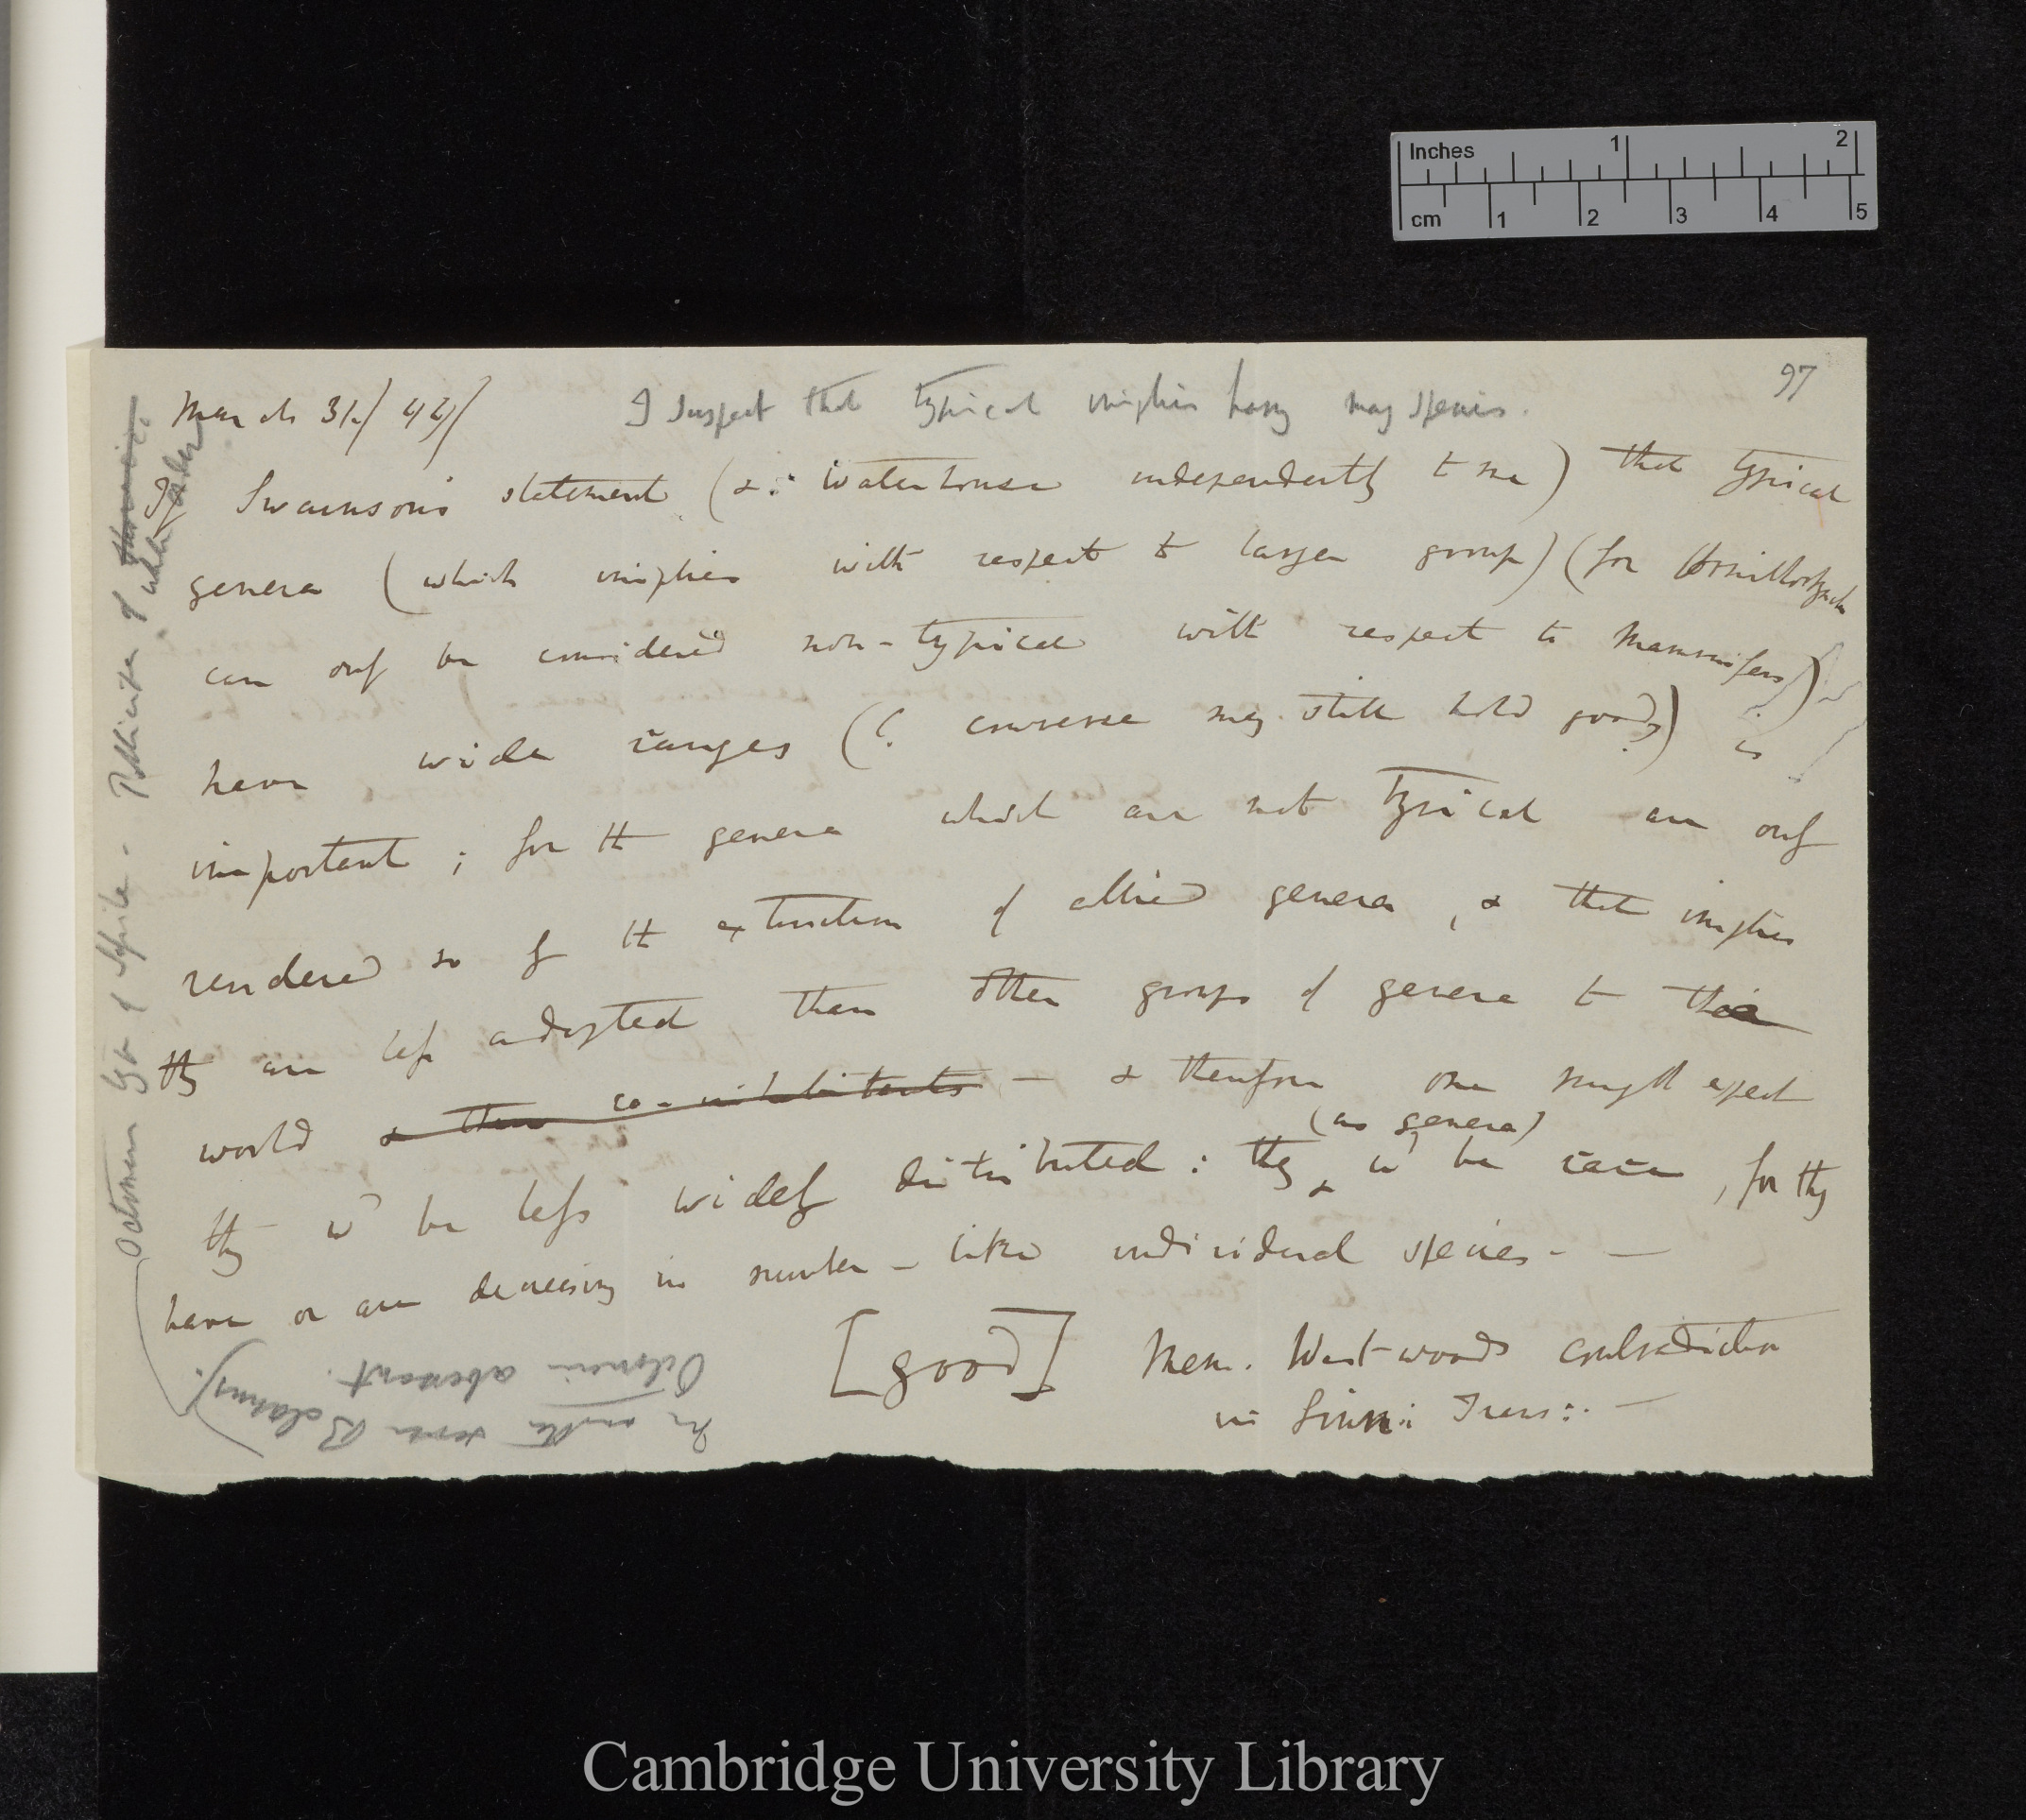 Inches 1 2
cm 1 2 3 4 5
97
March 31/ 42/
I suspect that typical implies having many species.
If Swainson's statement (& : Waterhouse independently to me) that typical
genera (which implies with respect to larger group) (for Ornithorhynchus
can only be considered non-typical with respect to Mammifers)
have wide ranges (? converse may still hold good?) is
important ; for the genera which are not typical are only
rendered so by the extinction of allied genera, & that implies
they are less adapted than other groups of genera to the
world & their co-inhabitants — & therefore one might expect
they wd be less widely distributed : they (as genera) wd be rarer, for they
have or are decreasing in number — like individual species - —
[good] Mem. Westwoods contradiction
in Linn: Trans: . —
Octomeris
Pollicipes of
whole
In with
Balanus).
Octomeris aberrant.